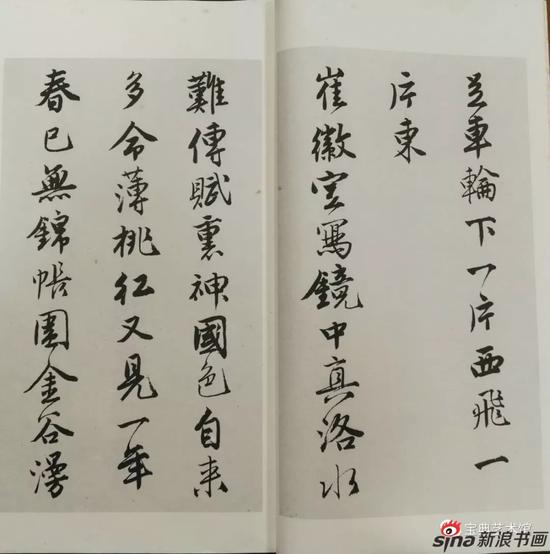 足車輪下一片西飛一
片東
崔徽空寫鏡中真洛水
難傳賦裏神國色自来
多命薄桃紅又見一年
春已無錦帳圍金谷漫
宝典艺术馆
sina 新浪书画